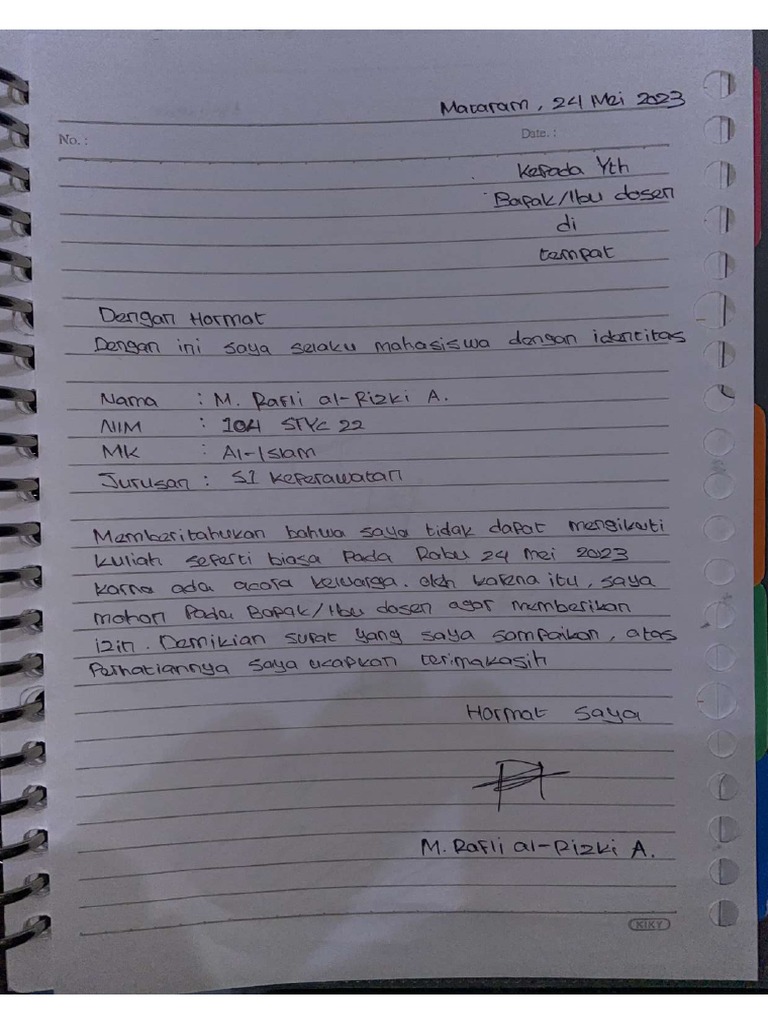 Mataram, 24 Mei 2023
No. :
Date. :
Kepada Yth
Bapak/Ibu dosen
di
tempat
Dengan Hormat
Dengan ini saya selaku mahasiswa dengan identitas
Nama : M. Rafli al-Rizki A.
NIM : 104 STYC 22
MK : Al-Islam
Jurusan : S1 Keperawatan
Memberitahukan bahwa saya tidak dapat mengikuti
kuliah seperti biasa Pada Rabu 24 Mei 2023
karna ada acara keluarga. oleh karena itu, saya
mohon Pada Bapak/Ibu dosen agar memberikan
izin. Demikian surat yang saya sampaikan, atas
Perhatiannya saya ucapkan terimakasih
Hormat saya
M. Rafli al-Rizki A.
KIKY